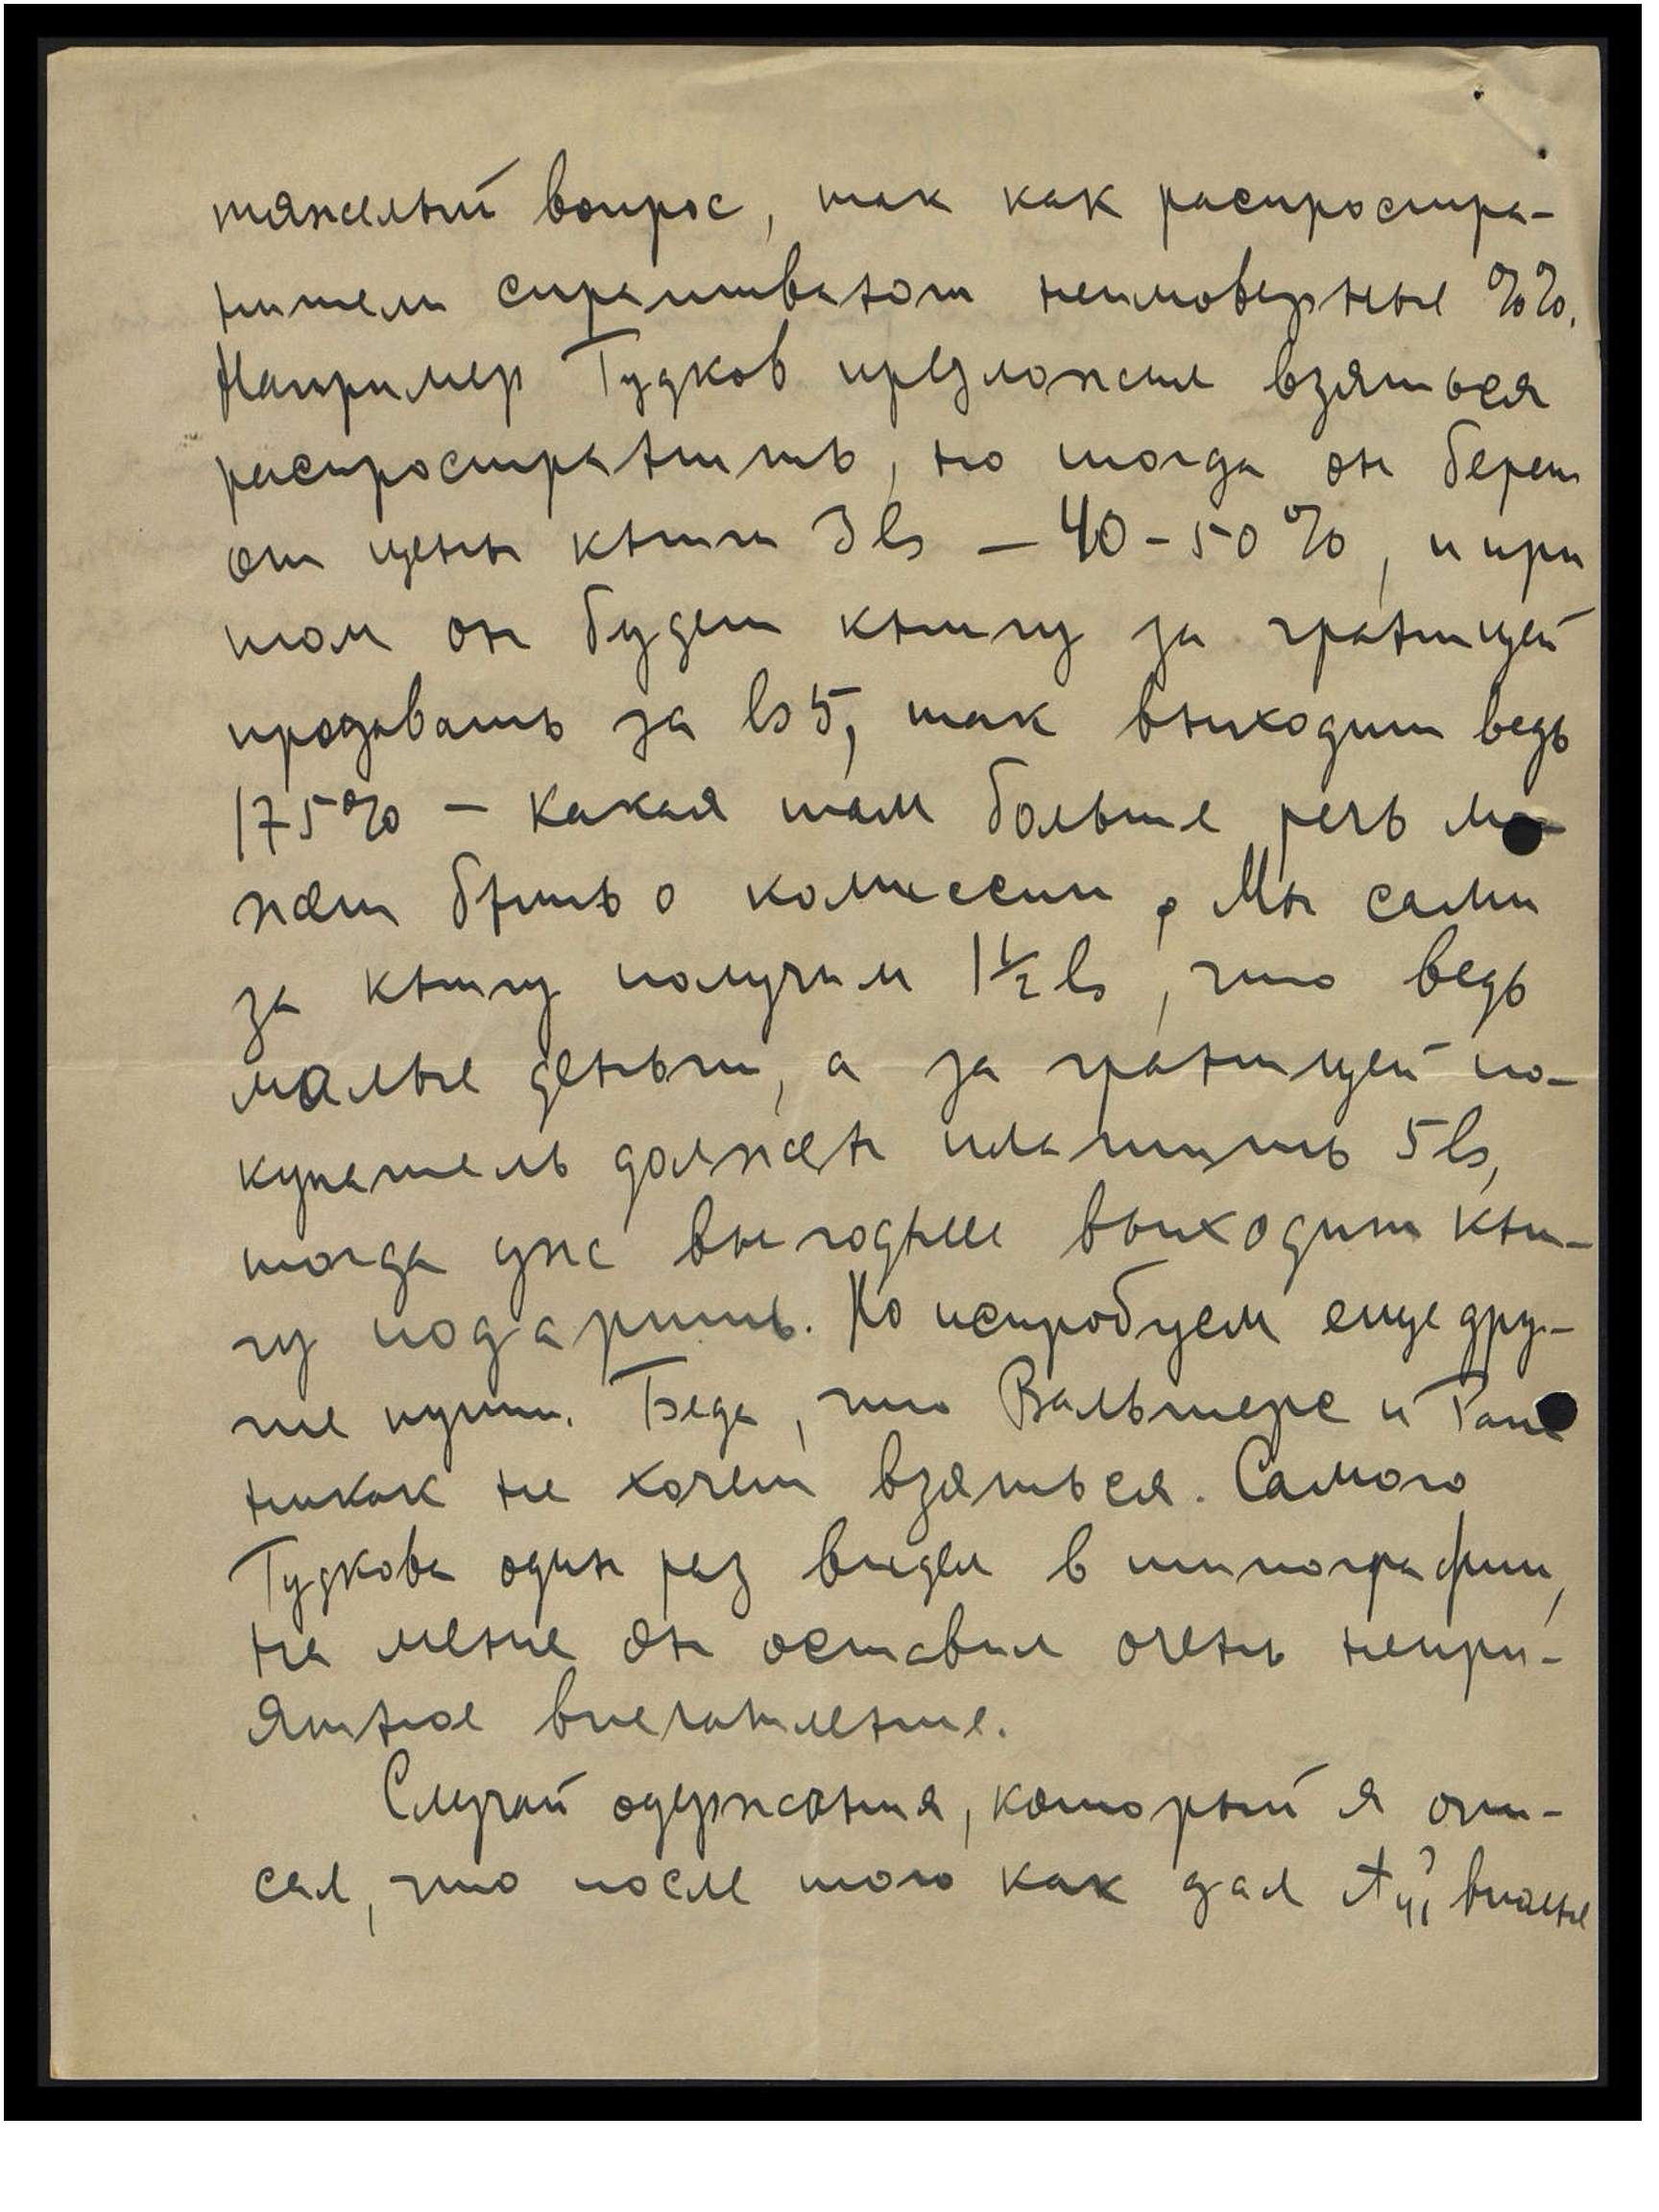 тяжелый вопрос, так как распростра-
нители спрашивают неимоверные %%.
Например Гудков предложил взяться
распространить, но тогда он берет
от цены книги 3 ls — 40-50%, и при
том он будет книгу за границей
продавать за ls 5, так выходит ведь
175% — какая там больше речь мо-
жет быть о комиссии. Мы сами
за книгу получим 1½ ls, что ведь
малые деньги, а за границей по-
купатель должен платить 5 ls,
тогда уже выгоднее выходит кни-
гу подарить. Но испробуем еще дру-
гие пути. Беда, что Вальтерс и
никак не хочет взяться. Самого
Гудкова один раз видел в типографии,
на меня он оставил очень непри-
ятное впечатление.
Случай одержания, который я опи-
сал, что после того как дал